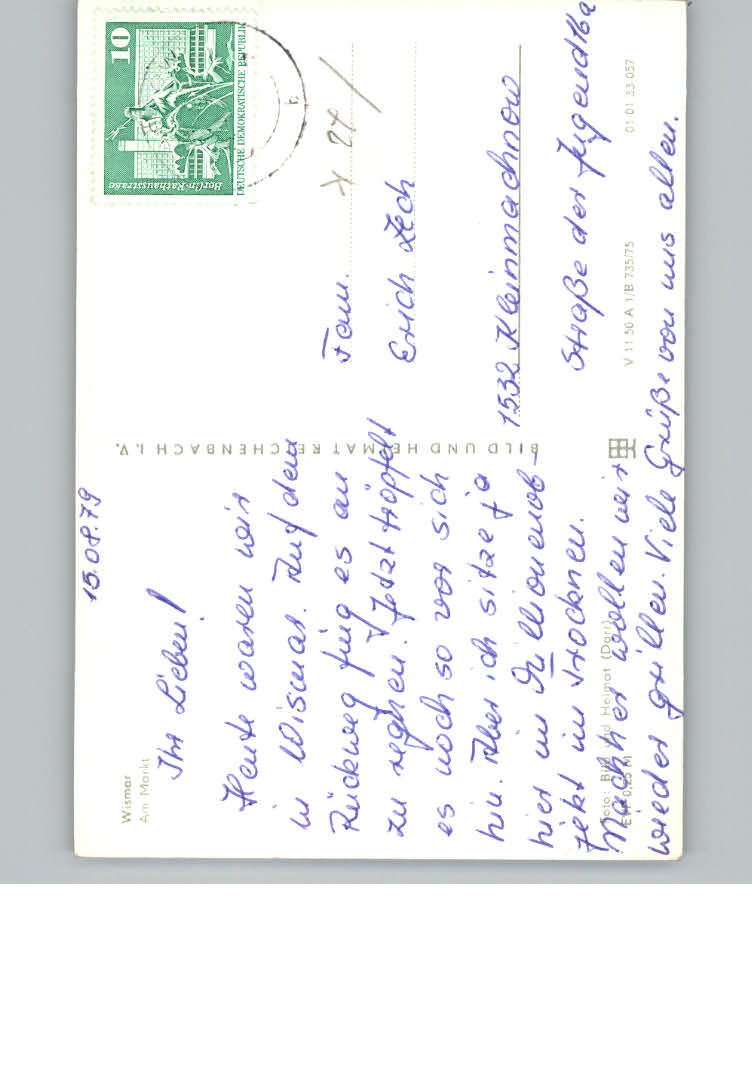 Wismar
Am Markt
15.08.79
Ihr Lieben!
Heute waren wir
in Wismar. Auf dem
Rückweg fing es an
zu regnen. Jetzt tröpfelt
es noch so vor sich
hin. Aber ich sitze ja
hier im Millionenob-
jekt im Trocknen.
Nachher wollen wir
wieder grillen. Viele Grüße von uns allen.
Foto: Bild und Heimat (Darr)
EVP 0,25 M
BILD UND HEIMAT REICHENBACH I. V.
V 11 50 A 1/B 735/75
01 01 33 057
10
Berlin-Rathausstraße
DEUTSCHE DEMOKRATISCHE REPUBLIK
Fam.
Erich Zech
1532 Kleinmachnow
Straße der Jugend 16a